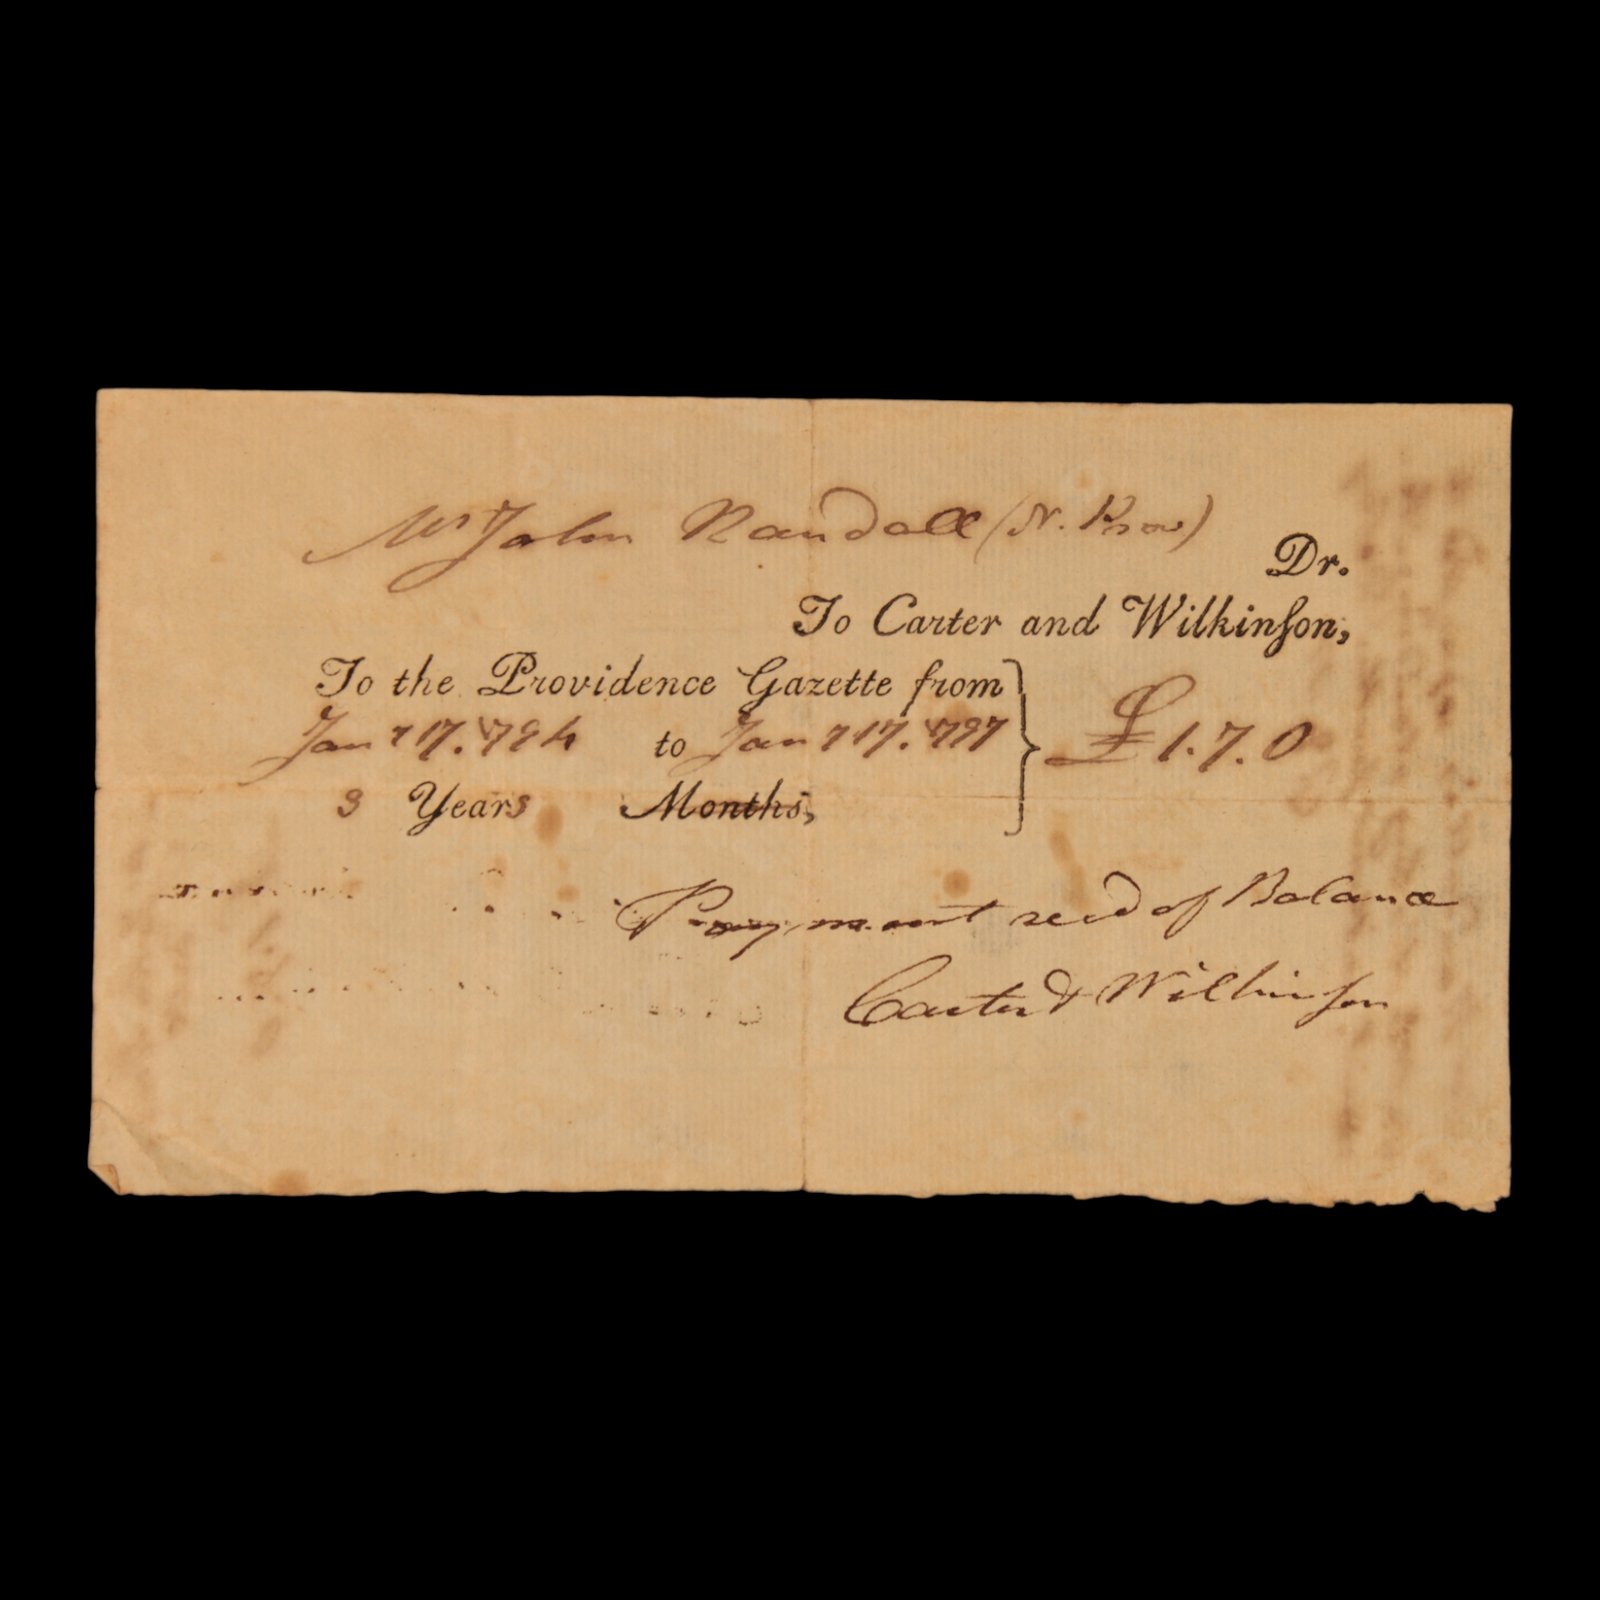 Mr John Randall (N. Prov)
Dr.
To Carter and Wilkinſon,
To the Providence Gazette from
Jany 17. 1794 to Jany 17. 1797 } £1.7.0
3 Years Months,
Payment recd of Balance
Carter & Wilkinſon